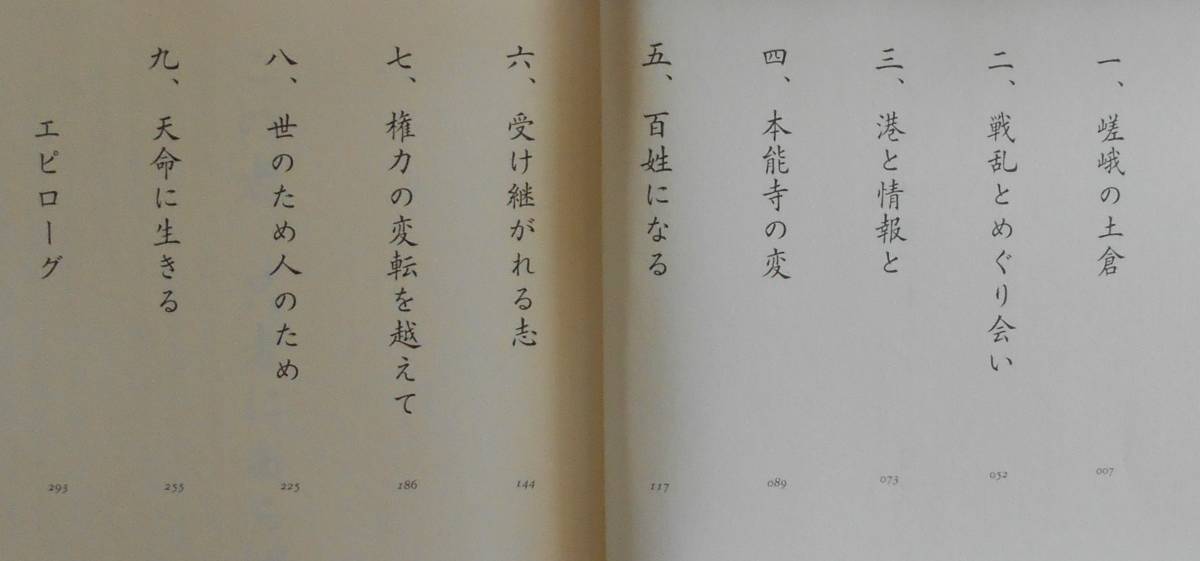 一、嵯峨の土倉
007
二、戦乱とめぐり会い
052
三、港と情報と
073
四、本能寺の変
089
五、百姓になる
117
六、受け継がれる志
144
七、権力の変転を越えて
186
八、世のため人のため
225
九、天命に生きる
255
エピローグ
293